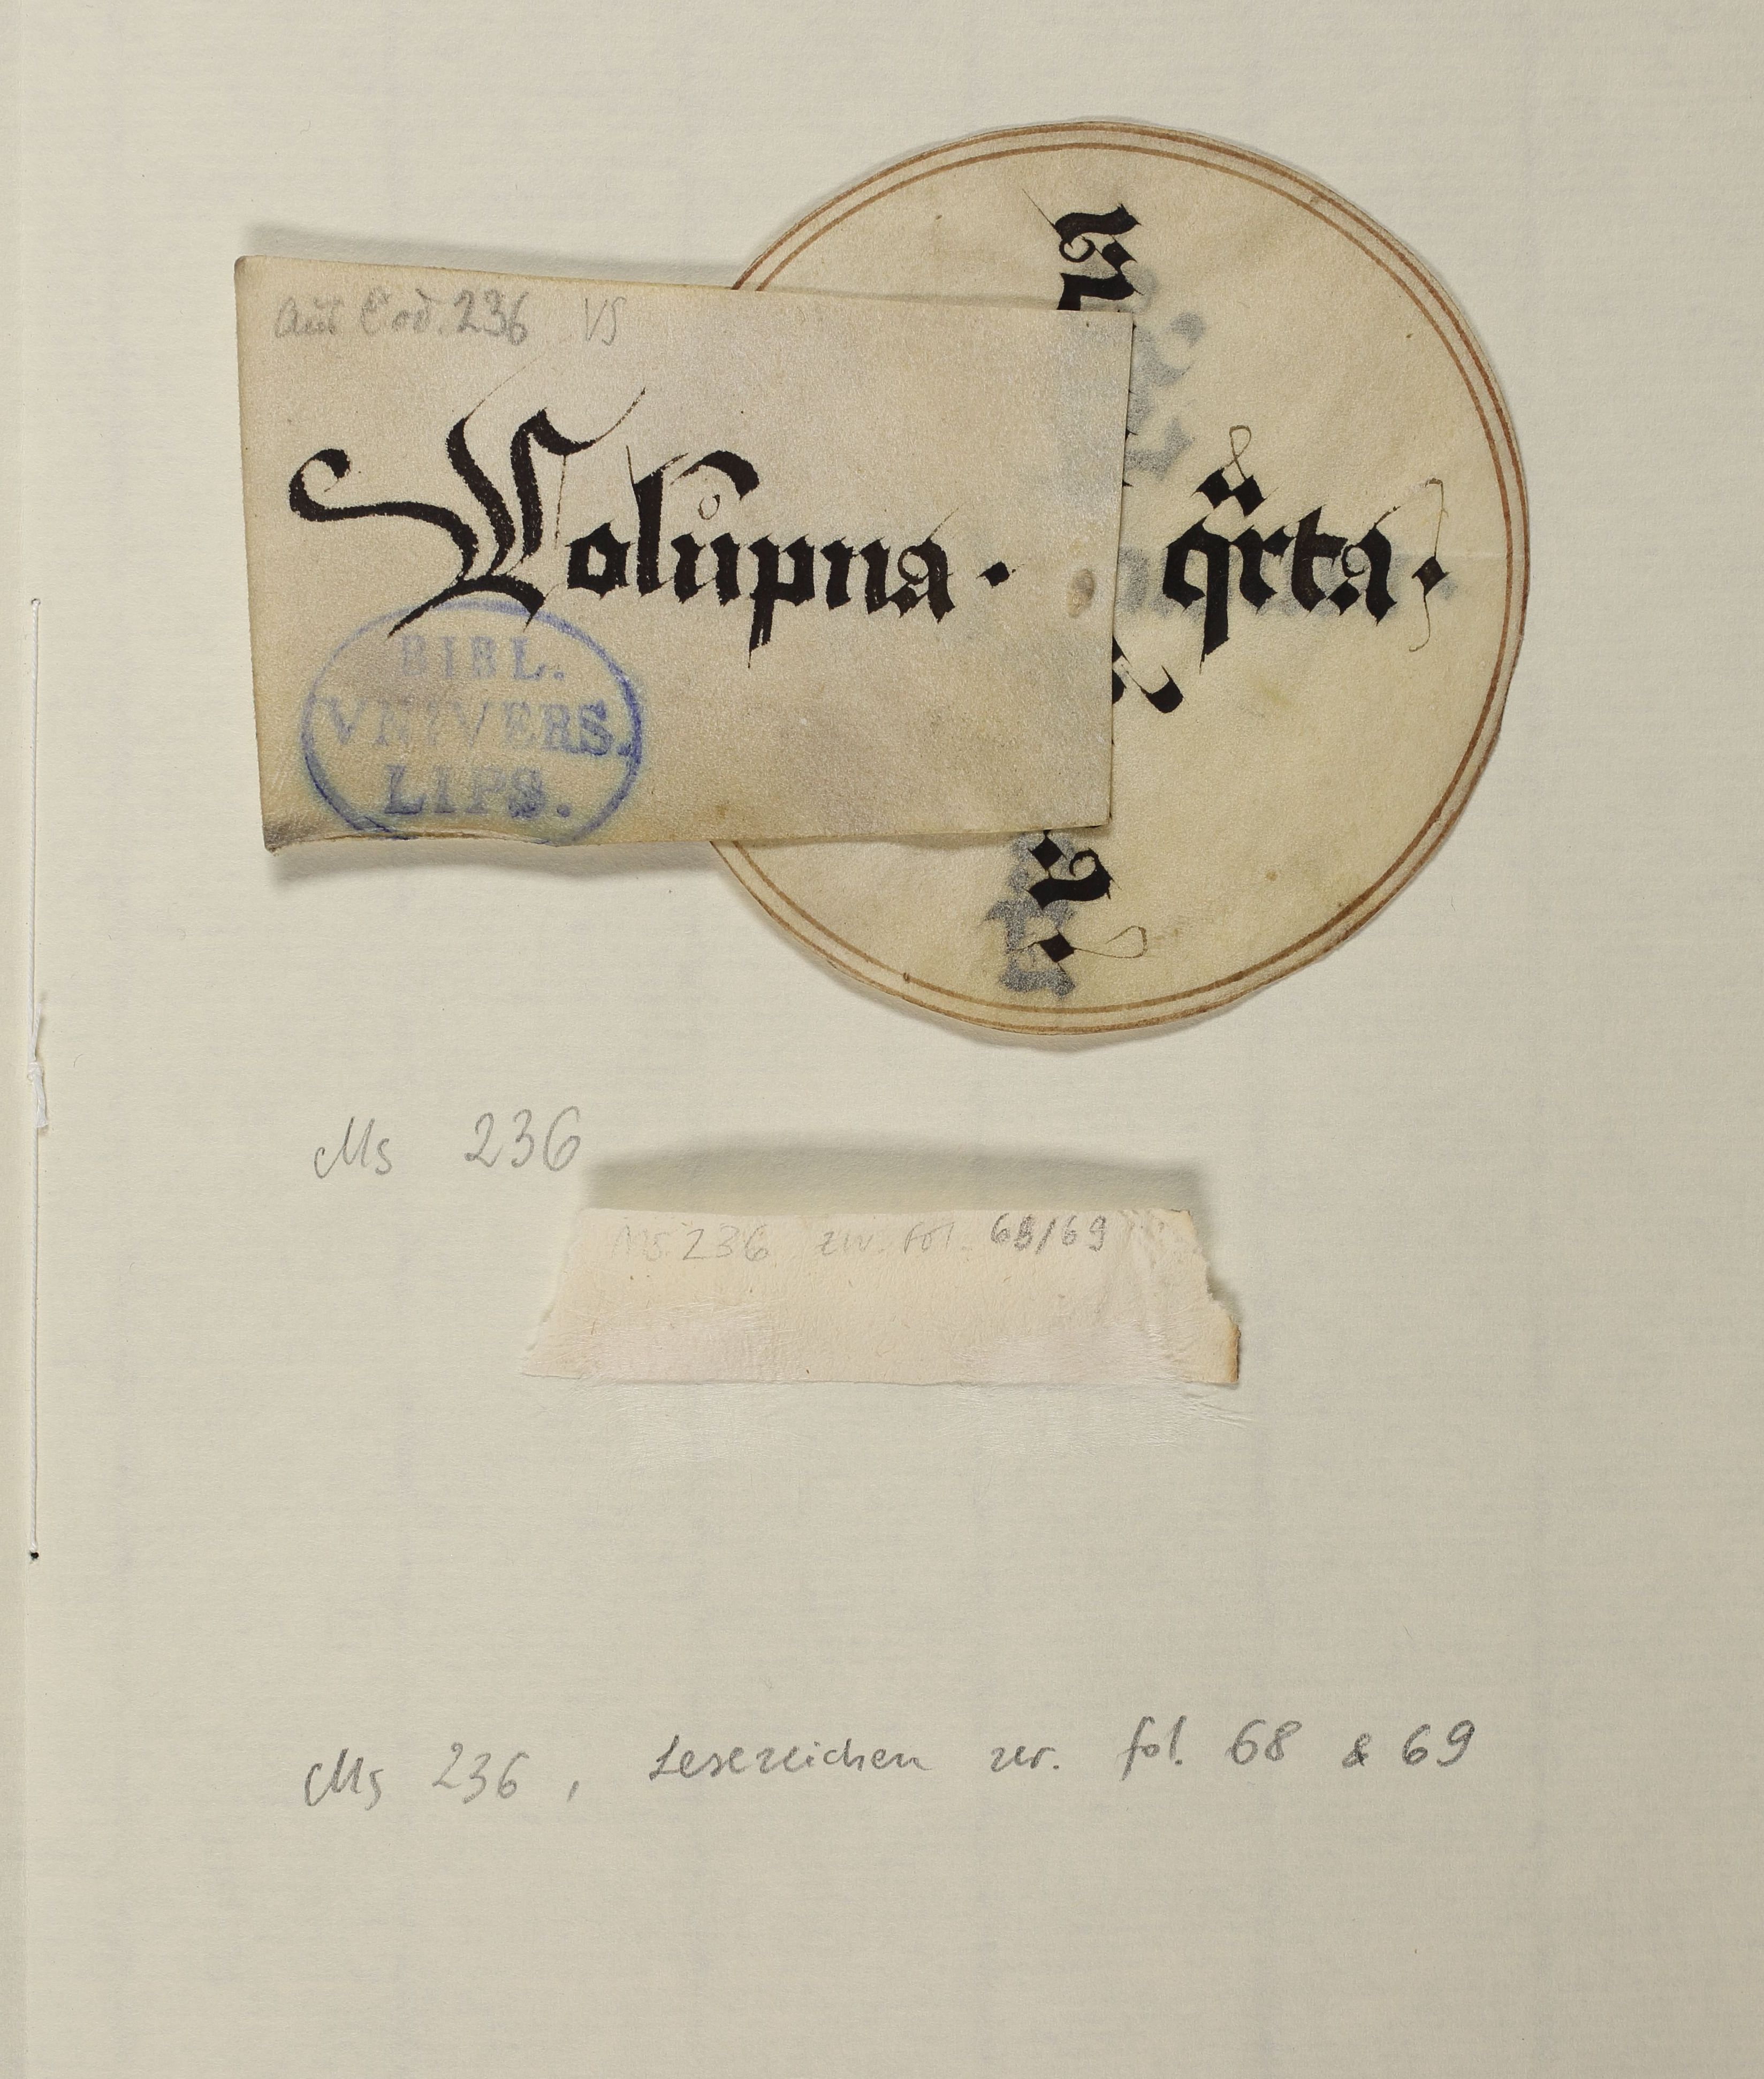 Aus Cod. 236 VS
Colūpna.
BIBL.
VNIVERS.
LIPS.
qrta.
Ms 236
Ms. 236 zw. fol. 68/69
Ms 236, Lesezeichen zw. fol. 68 & 69